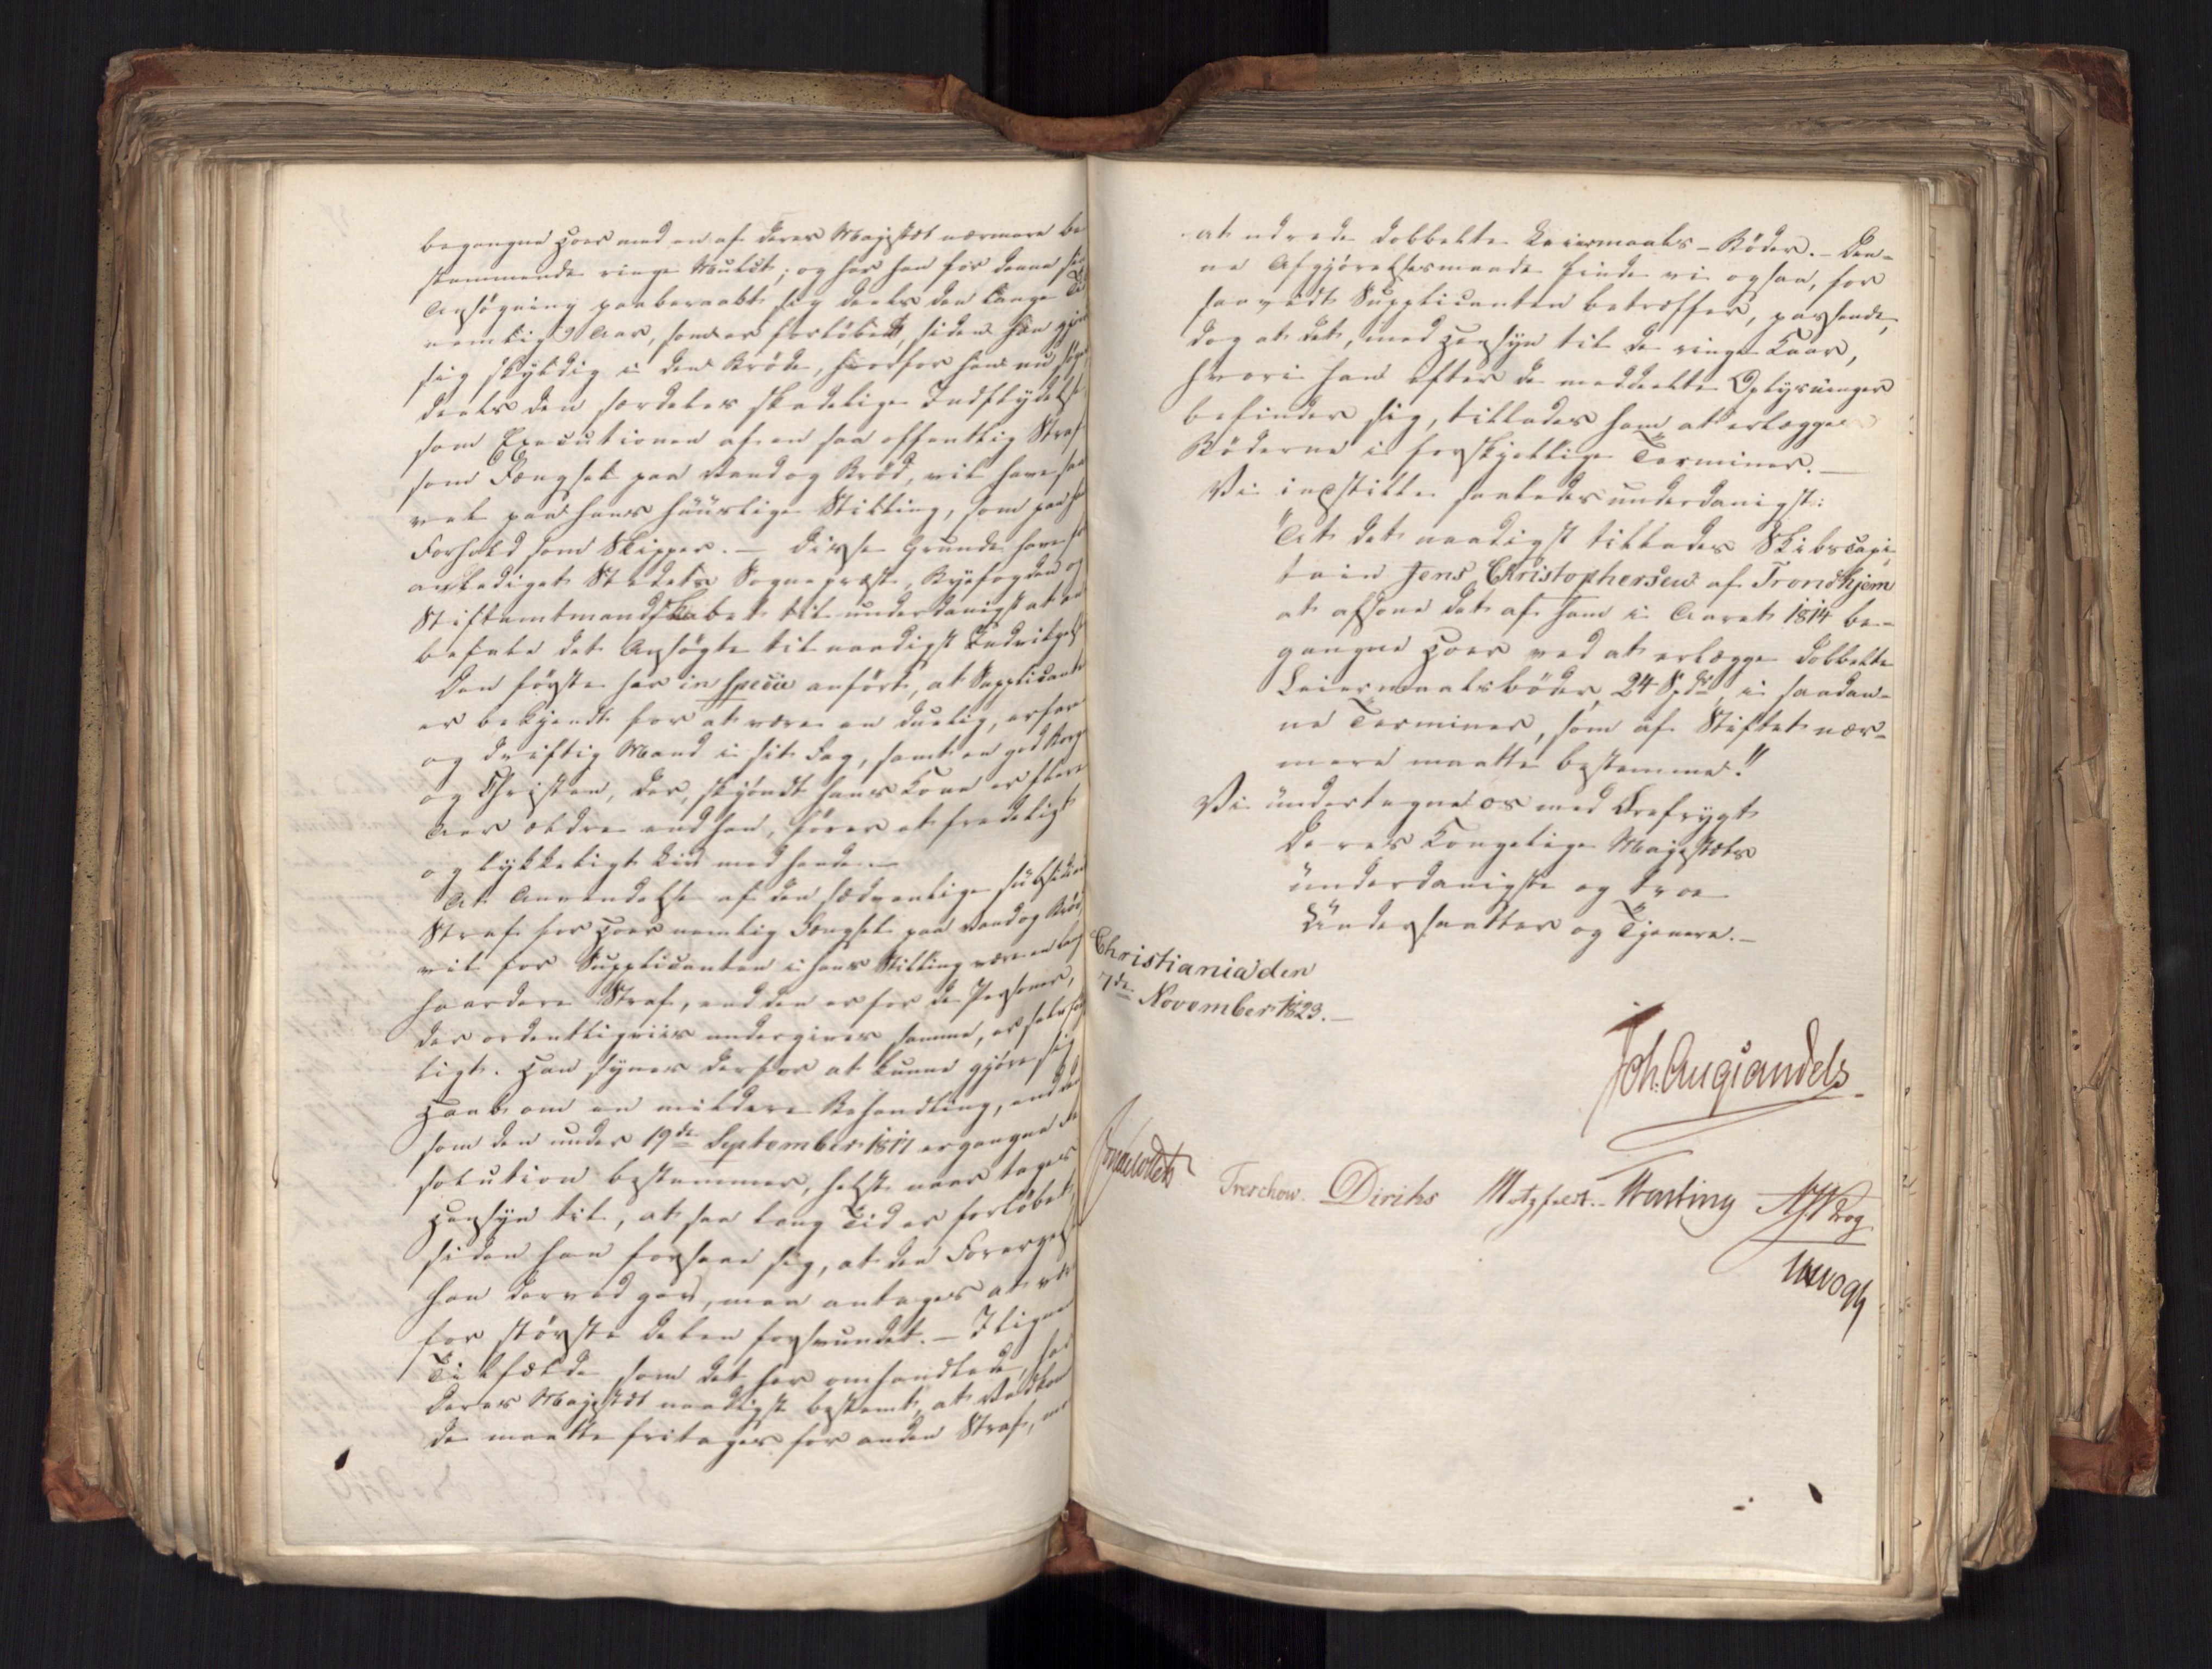 begangne Hoer med en af Deres Majestæt nærmere be-
stemmende ringe Mulct; og har han for denne sin
Ansøgning paaberaabt sig deels den lange Tid
nemlig 9 Aar, som er forløbet, siden han gjorde
sig skyldig i den Brøde, hvorfor han nu søger
deels den særdeles skadelige Indflydelse
som Executionen af en saa offentlig Straf
som Fængsel paa Vand og Brød, vil have saa
vel paa hans huuslige Stilling, som paa hans
Forhold som Skipper. — Disse Grunde have
anlediget Stedets Sognepræst, Byefogden og
Stiftamtmandskabet til underdanigst at an
befale det Ansøgte til naadigst Indvilgelse
Den første har in specie anført, at Supplicanten
er bekjendt for at være en duelig, erfaren
og driftig Mand i sit Fag, samt en god Borger
og Christen, der, skjøndt hans Kone er flere
Aar ældre end han, fører et fredeligt
og lykkeligt Liv med hende. —
At Anvendelse af den sædvanlige subsidiaire
Straf for Hoer nemlig Fængsel paa Vand og Brød,
vil for Supplicanten i hans Stilling være en langt
haardere Straf, end den er for de Personer,
der ordentligviis undergives samme, er
ligt. Han synes derfor at kunne gjøre sig
Haab om en mildere Behandling, end den
som den under 19de September 1817 ergangne Re
solution bestemmer, helst naar tages
Hensyn til, at saa lang Tid er forløbet,
siden han forsaae sig, at den Forargelse
han derved gav, maa antages at være
for største Delen forsvundet. — I lignende
Tilfælde som det her omhandlede, har
Deres Majestæt naadigst bestemt, at Vedkommen
de maatte fritages for anden Straf, mod
at udrede dobbelte Leiermaals-Bøder. — Den-
ne Afgjørelsesmaade finde vi ogsaa, for
saavidt Supplicanten betræffer, passende,
dog at det, med Hensyn til de ringe Kaar,
hvori han efter de meddeelte Oplysninger
befinder sig, tillades ham at erlægge
Bøderne i forskjellige Terminer. —
Vi indstille saaledes underdanigst:
"At det naadigst tillades Skibscapi-
tain Jens Christophersen af Trondhjem
at afsone det af ham i Aaret 1814 be-
gangne Hoer ved at erlægge dobbelte
Leiermaalsbøder, 24 Spdr, i saadan-
ne Terminer, som af Stiftet nær-
mere maatte bestemmes."
Vi undertegne os med Ærefrygt
Deres Kongelige Majestæts
underdanigste og troe
Undersaatter og Tjenere. —
Christiania den
7de November 1823. —
Joh. Aug Sandels
Jonas Collett
Treschow. Diriks Motzfeldt. Krog